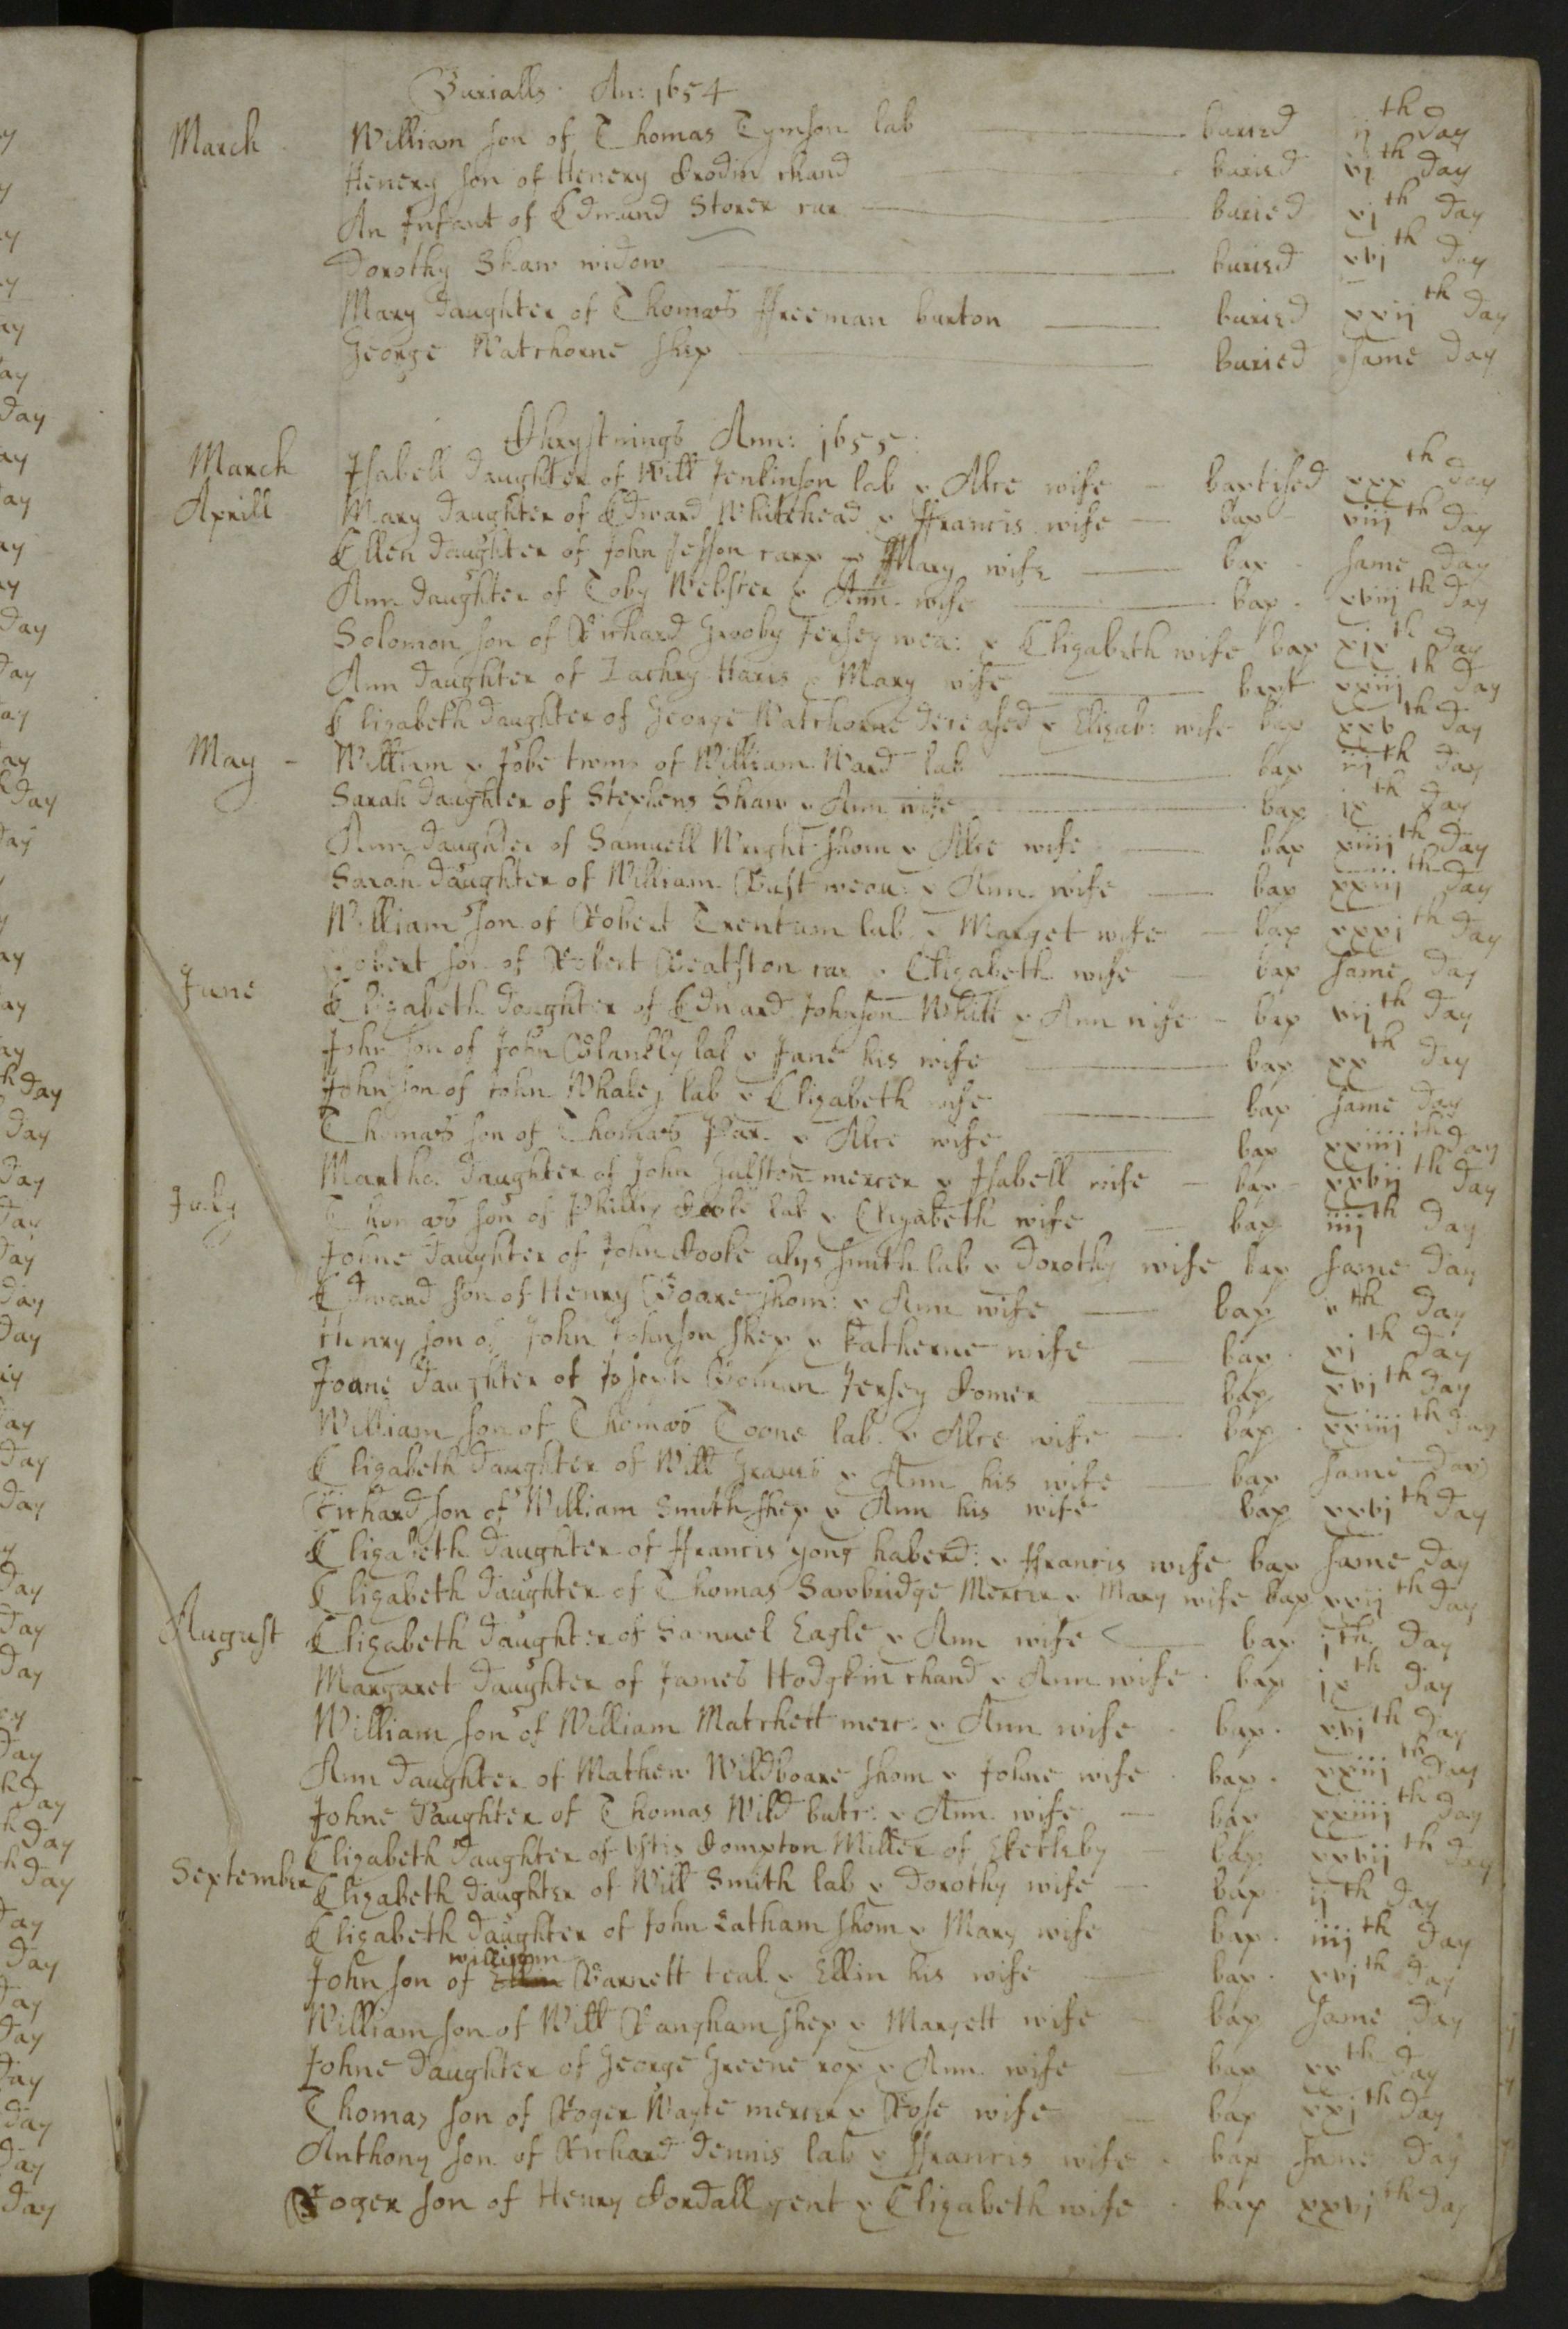 Burialls An: 1654
March William son of Thomas Tymson lab buried ij th day
Henery son of Henery chand buried vj th day
An Infant of Edmund Storer car buried xj th day
Dorothy Shaw widow buried xvj th day
Mary daughter of Thomas Ffreeman burton buried xxij th day
George Watchorne shep buried same day
Chrystnings Ann: 1655
March Isabell daughter of Will Jenkinson lab & Alce wife baptised xxx th day
Aprill Mary daughter of Edward Whitehead & Ffrancis wife bap viij th day
Ellen daughter of John Jesson carp & Mary wife bap same day
Ann daughter of Toby Webster & Ann wife bap xviij th day
Solomon son of Richard Grooby Jersey wea: & Elizabeth wife bap xix th day
Ann daughter of Zachry Haris & Mary wife bapt xxiij th day
Elizabeth daughter of George Watchorne deceased & Elizab: wife bap xxv th day
May William & Jobe twins of William Ward lab bap iij th day
Sarah daughter of Stephens Shaw & Ann wife bap ix th day
Ann daughter of Samuell Wright shom & Alce wife bap xiiij th day
Sarah daughter of William Bust weau: & Ann wife bap xxiij th day
William son of Robert Trentam lab & Marget wife bap xxxj th day
Robert son of Robert Beatston car & Elizabeth wife bap same day
June Elizabeth daughter of Edward Johnson Whitt & Ann wife bap vij th day
John son of John Blankly lab & Jane his wife bap xx th day
John son of John Whaley lab & Elizabeth wife bap same day
Thomas son of Thomas Par & Alce wife bap xxiiij th day
Martha daughter of John Gulston mercer & Isabell wife bap xxvij th day
July Thomas son of Phillip lab & Elizabeth wife bap iiij th day
Johne daughter of John Cooke alys smith lab & Dorothy wife bap same day
Edward son of Henry Boare shom: & Ann wife bap v th day
Henry son of John Johnson shep & Katherne wife bap vj th day
Joane daughter of Joseph Boman Jersey Comer bap xvj th day
William son of Thomas Toone lab & Alce wife bap xxiiij th day
Elizabeth daughter of Will & Ann his wife bap same day
Richard son of William Smith shep & Ann his wife bap xxvj th day
Elizabeth daughter of Ffrancis yong haberd: & Ffrancis wife bap same day
Elizabeth daughter of Thomas Sawbridge Mercer & Mary wife bap xxvij th day
August Elizabeth daughter of Samuel Eagle & Ann wife bap j th day
Margaret daughter of James Hodgkin chand & Ann wife bap ix th day
William son of William Matchett merc: & Ann wife bap xvj th day
Ann daughter of Mathew Wildboare shom & Johne wife bap xxiij th day
Johne daughter of Thomas Wild butc: & Ann wife bap xxiiij th day
Elizabeth daughter of Compton Miller of Skettleby bap xxvij th day
September Elizabeth daughter of Will Smith lab & Dorothy wife bap ij th day
Elizabeth daughter of John Latham shom & Mary wife bap iiij th day
John son of william Barnett teal & Ellin his wife bap xvj th day
William son of Will Bangham shep & Margett wife bap same day
Johne daughter of George Greene rop & Ann wife bap xx th day
Thomas son of Roger Wayte mercer & Rose wife bap xxj th day
Anthony son of Richard Dennis lab & Ffrancis wife bap same day
Roger son of Henry Cordall gent & Elizabeth wife bap xxvj th day